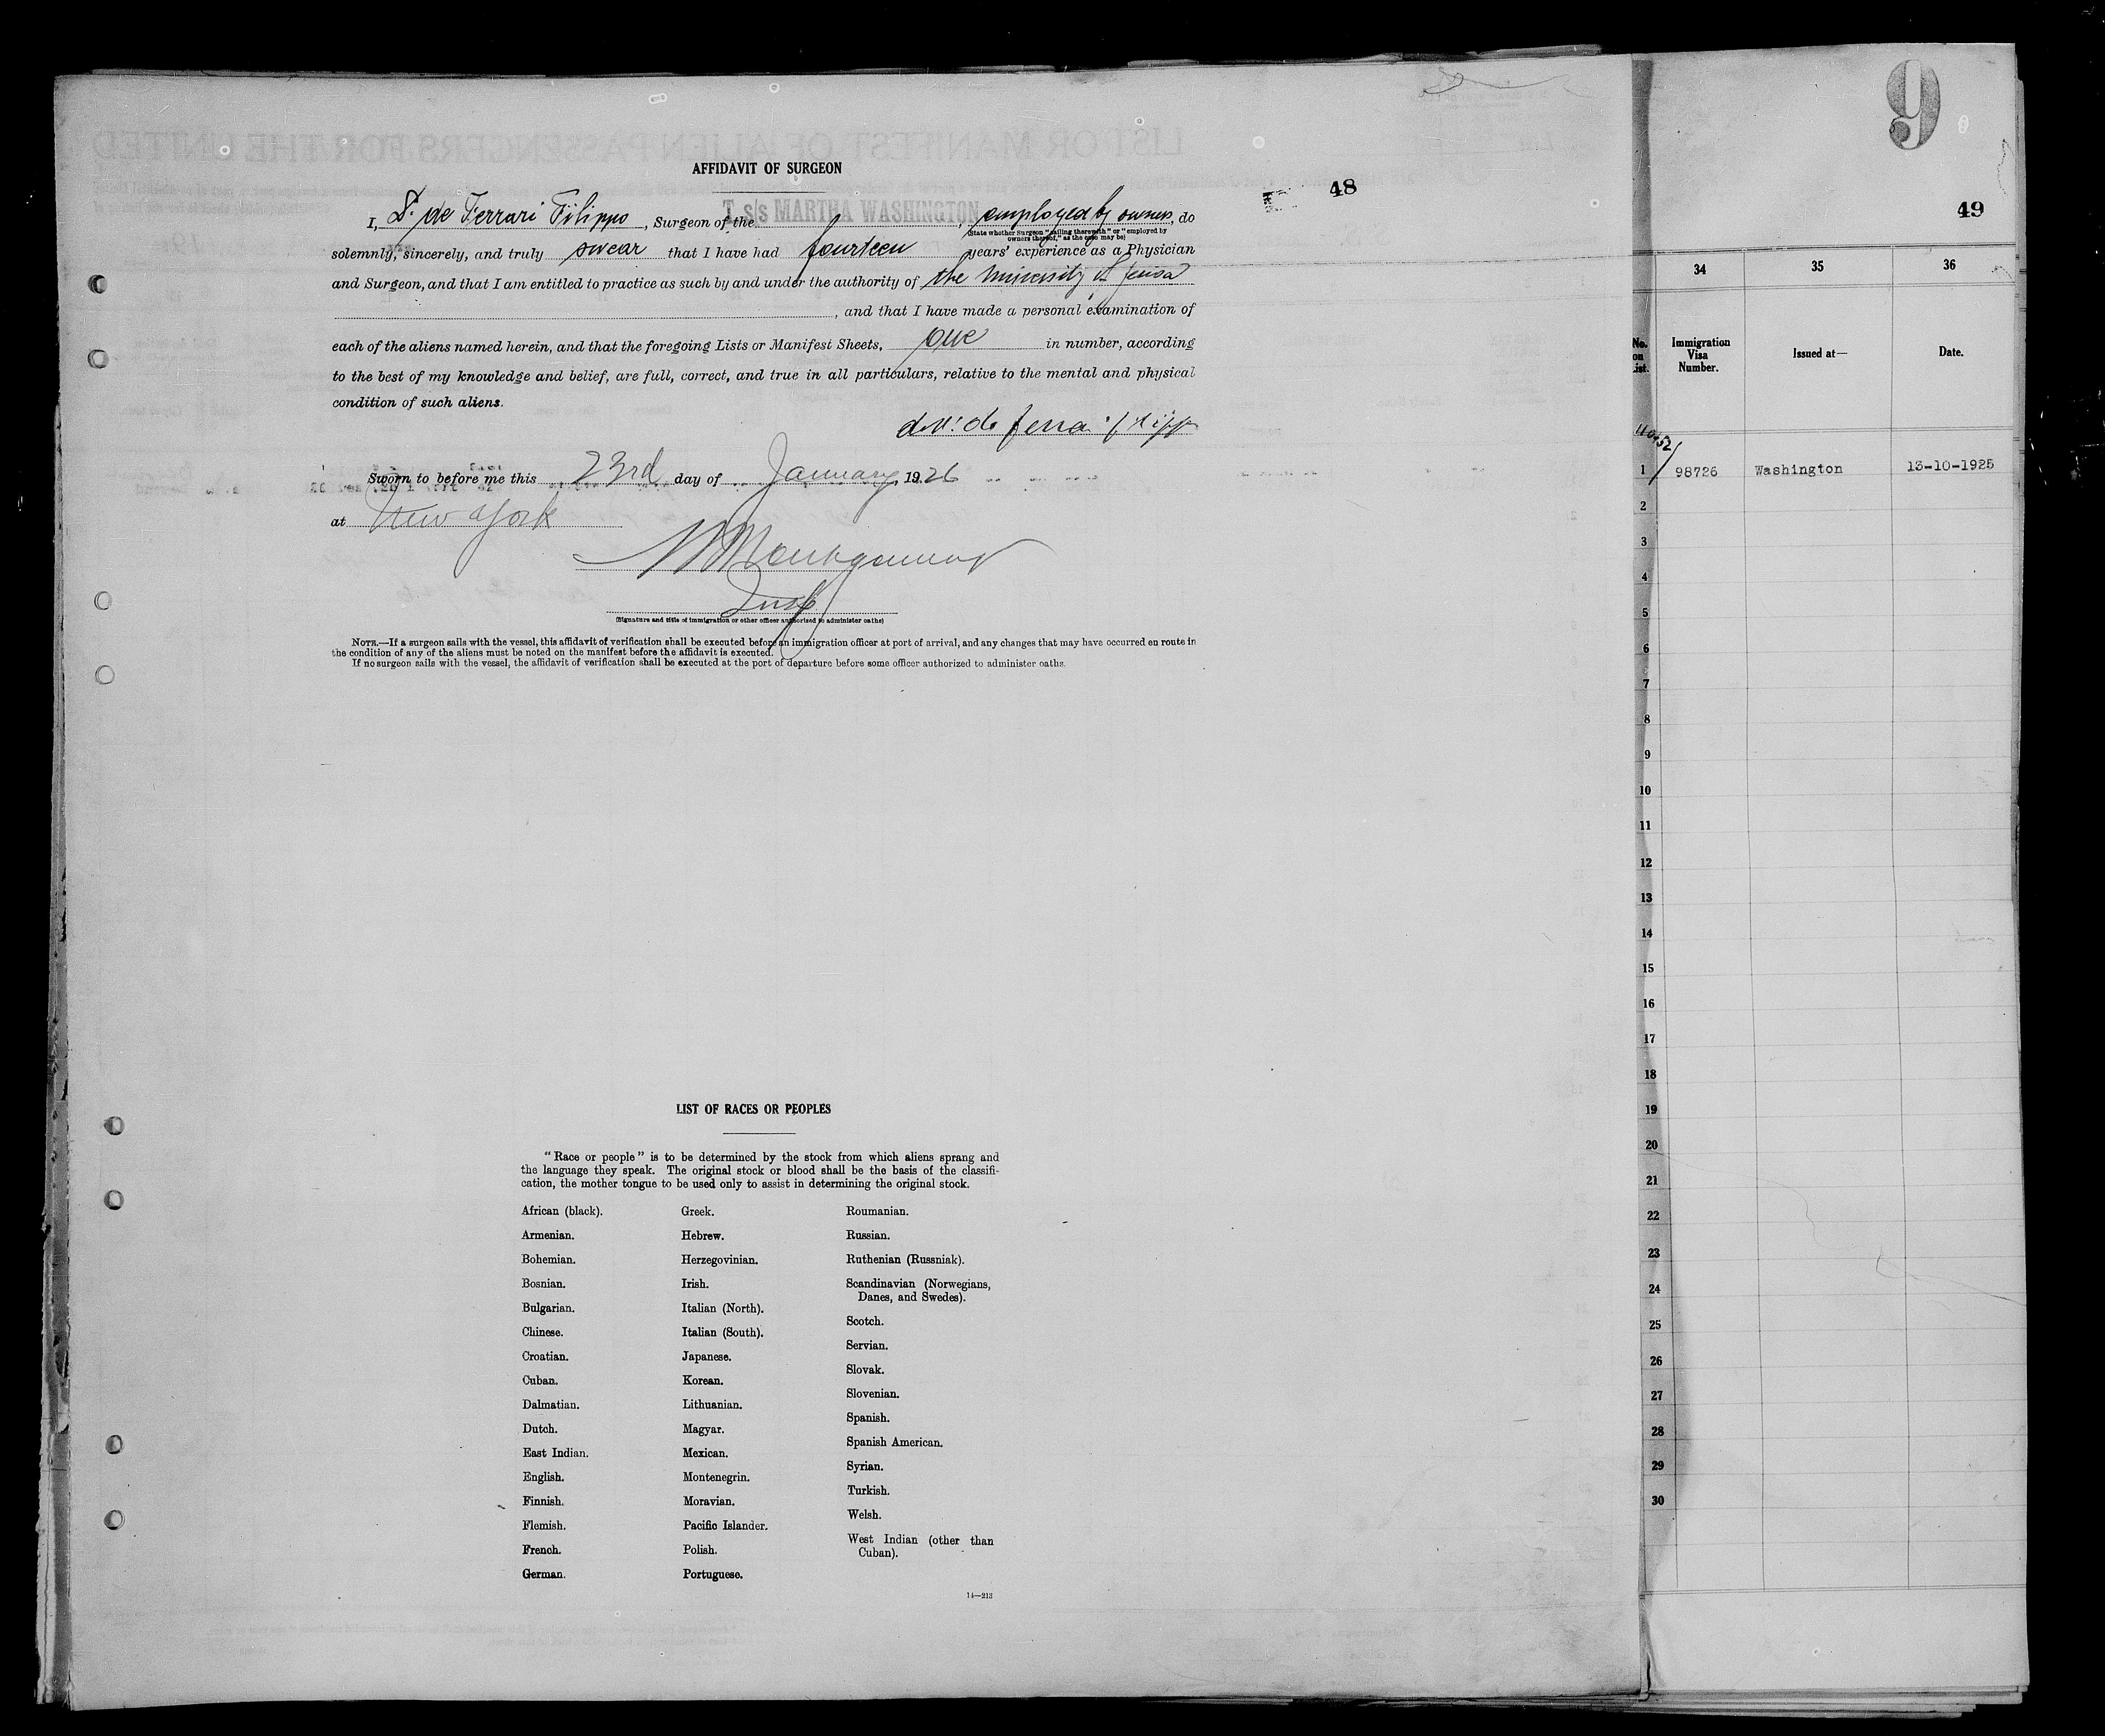 48
AFFIDAVIT OF SURGEON
I, D. de Ferrari Filippo, Surgeon of the T. s/s MARTHA WASHINGTON, employed by owners, do
(State whether Surgeon "sailing therewith" or "employed by
owners thereof," as the case may be)
solemnly, sincerely, and truly swear that I have had fourteen years' experience as a Physician
and Surgeon, and that I am entitled to practice as such by and under the authority of the University of Genoa
, and that I have made a personal examination of
each of the aliens named herein, and that the foregoing Lists or Manifest Sheets, one in number, according
to the best of my knowledge and belief, are full, correct, and true in all particulars, relative to the mental and physical
condition of such aliens.
Sworn to before me this 23rd day of January 1926
at New York
Insp
(Signature and title of immigration or other officer authorized to administer oaths)
NOTE.—If a surgeon sails with the vessel, this affidavit of verification shall be executed before an immigration officer at port of arrival, and any changes that may have occurred en route in
the condition of any of the aliens must be noted on the manifest before the affidavit is executed.
If no surgeon sails with the vessel, the affidavit of verification shall be executed at the port of departure before some officer authorized to administer oaths.
LIST OF RACES OR PEOPLES
"Race or people" is to be determined by the stock from which aliens sprang and
the language they speak. The original stock or blood shall be the basis of the classifi-
cation, the mother tongue to be used only to assist in determining the original stock.
African (black).
Armenian.
Bohemian.
Bosnian.
Bulgarian.
Chinese.
Croatian.
Cuban.
Dalmatian.
Dutch.
East Indian.
English.
Finnish.
Flemish.
French.
German.
Greek.
Hebrew.
Herzegovinian.
Irish.
Italian (North).
Italian (South).
Japanese.
Korean.
Lithuanian.
Magyar.
Mexican.
Montenegrin.
Moravian.
Pacific Islander.
Polish.
Portuguese.
Roumanian.
Russian.
Ruthenian (Russniak).
Scandinavian (Norwegians,
Danes, and Swedes).
Scotch.
Servian.
Slovak.
Slovenian.
Spanish.
Spanish American.
Syrian.
Turkish.
Welsh.
West Indian (other than
Cuban).
14—213
9
49
34 35 36
No.
on
List.
Immigration
Visa
Number.
Issued at—
Date.
1 98726 Washington 13-10-1925
2
3
4
5
6
7
8
9
10
11
12
13
14
15
16
17
18
19
20
21
22
23
24
25
26
27
28
29
30